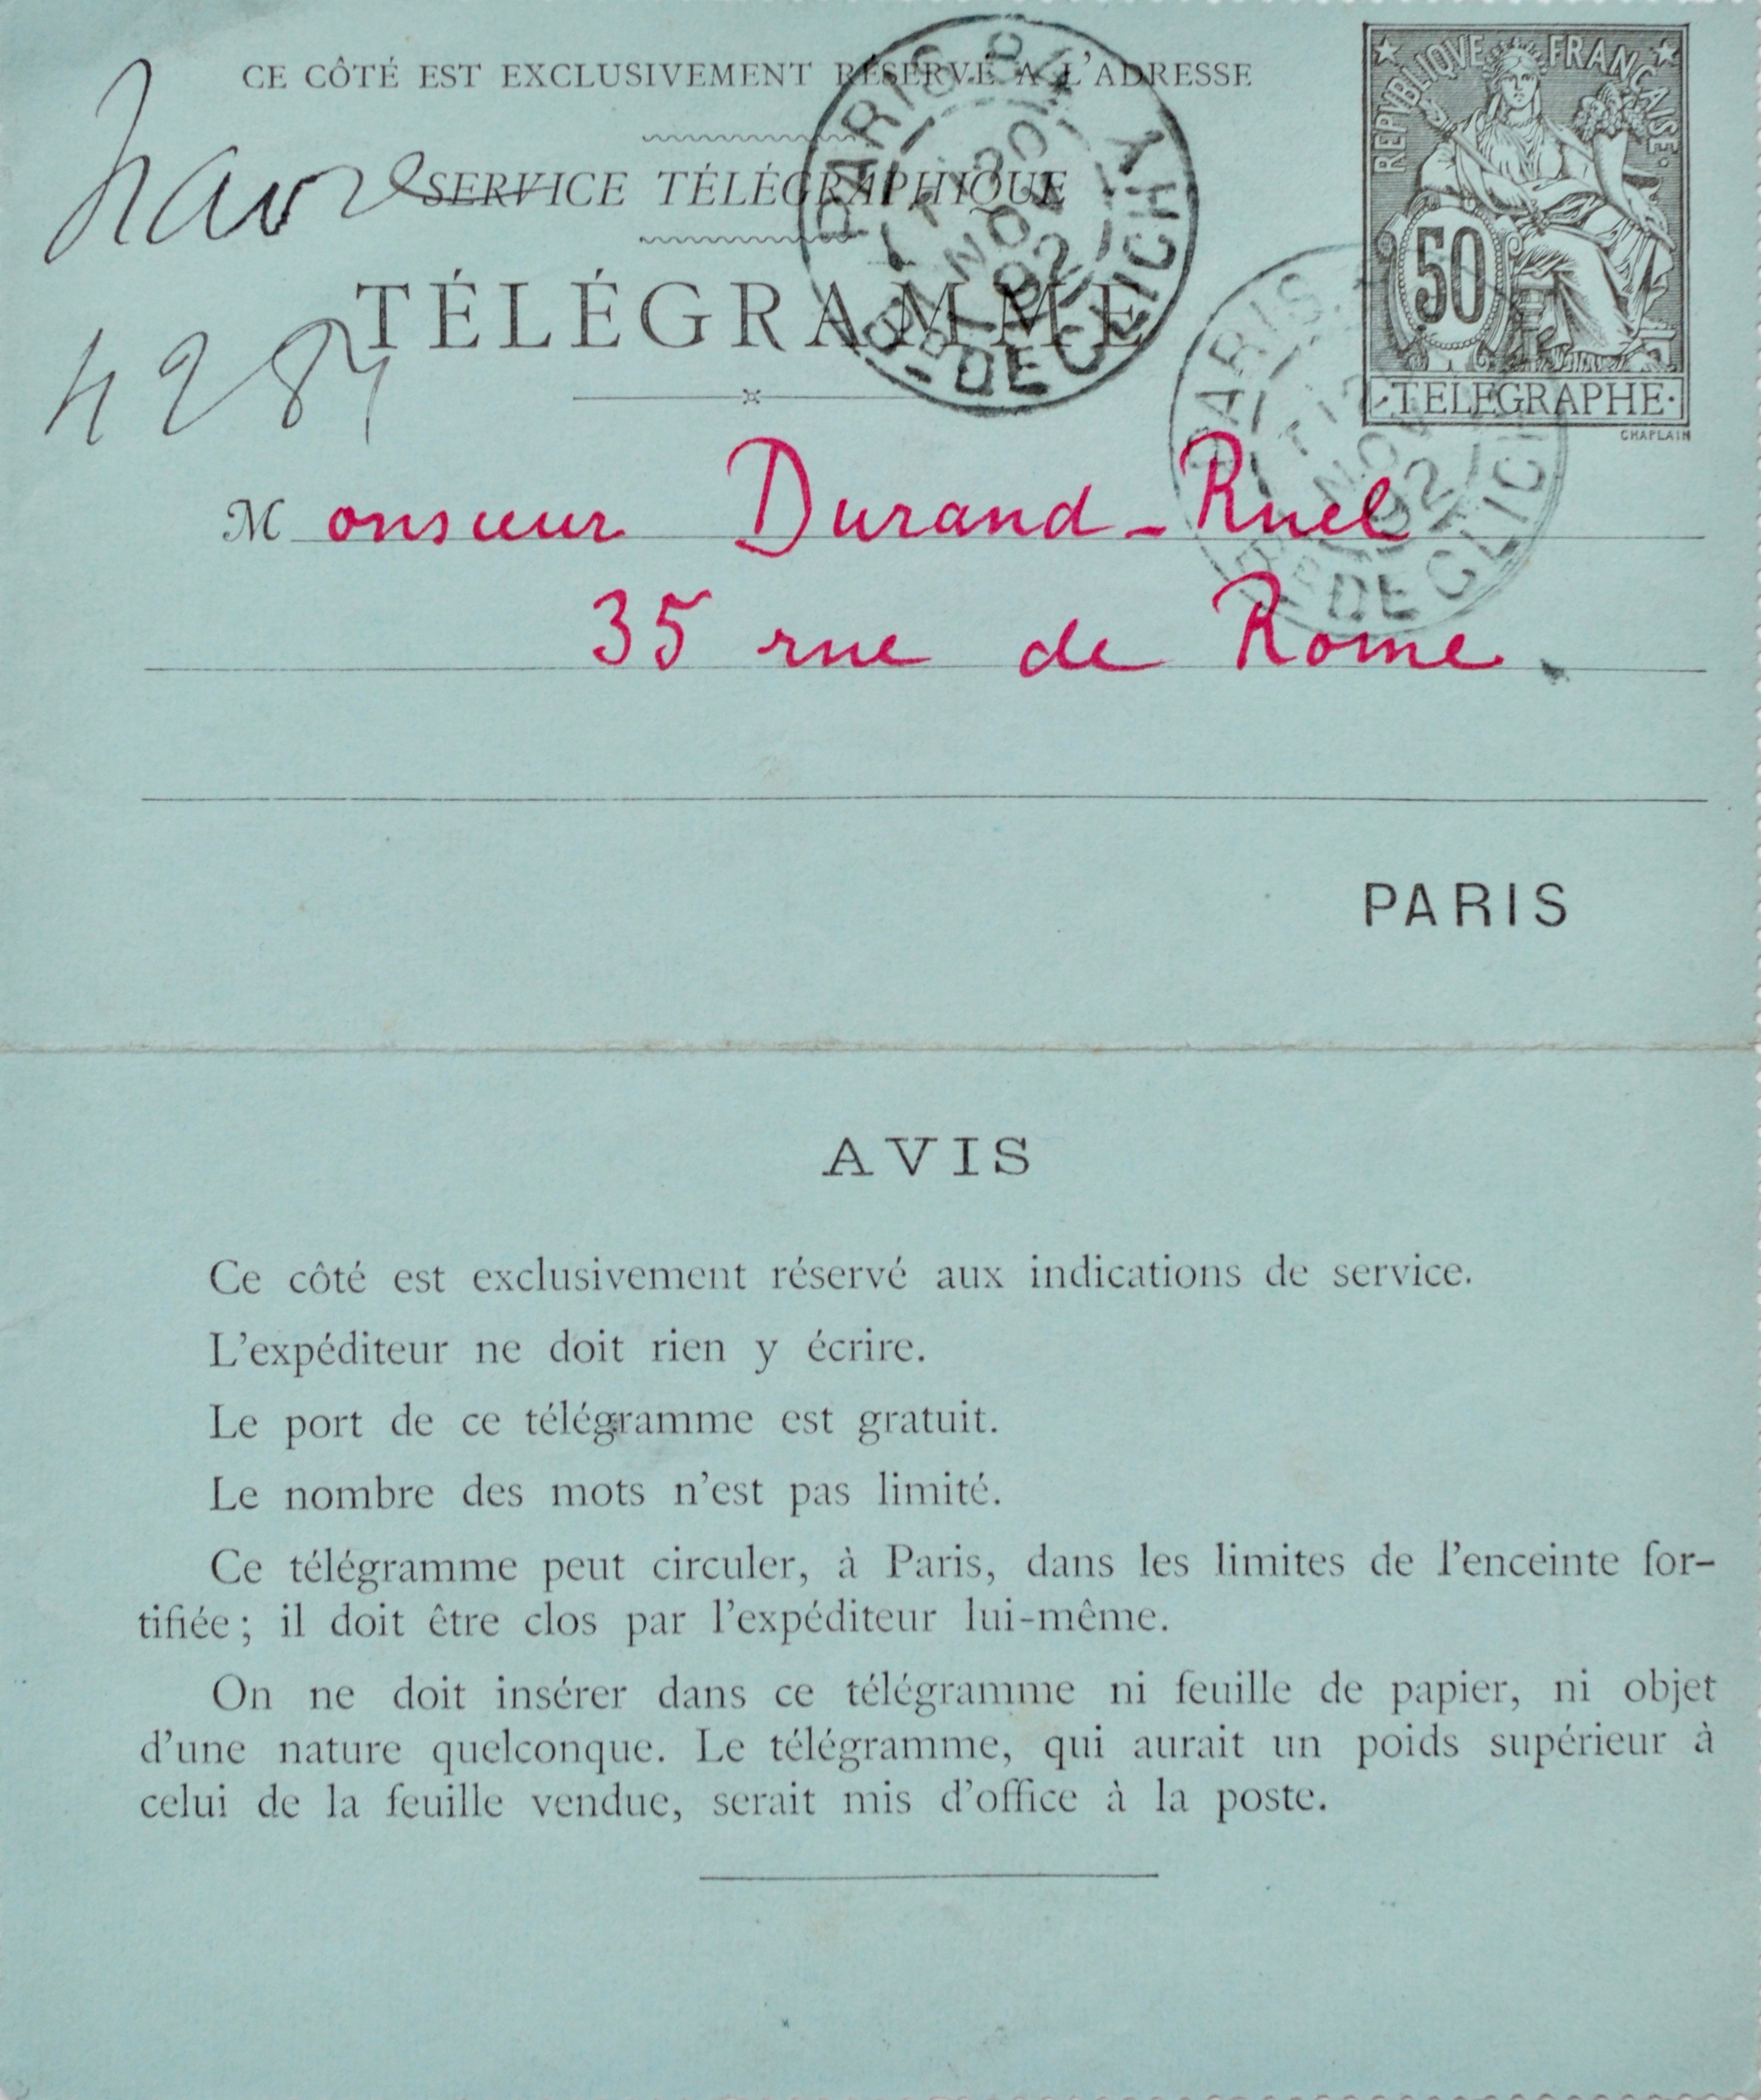 CE CÔTÉ EST EXCLUSIVEMENT RÉSERVÉ A L'ADRESSE
REPVBLIQVE FRANÇAISE
SERVICE TÉLÉGRAPHIQUE
TÉLÉGRAMME
50
TELEGRAPHE
CHAPLAIN
PARIS
NOV
92
DE CLICHY
PARIS
NOV
92
DE CLICHY
Monsieur Durand-Ruel
35 rue de Rome.
PARIS
AVIS
Ce côté est exclusivement réservé aux indications de service.
L'expéditeur ne doit rien y écrire.
Le port de ce télégramme est gratuit.
Le nombre des mots n'est pas limité.
Ce télégramme peut circuler, à Paris, dans les limites de l'enceinte for-
tifiée; il doit être clos par l'expéditeur lui-même.
On ne doit insérer dans ce télégramme ni feuille de papier, ni objet
d'une nature quelconque. Le télégramme, qui aurait un poids supérieur à
celui de la feuille vendue, serait mis d'office à la poste.